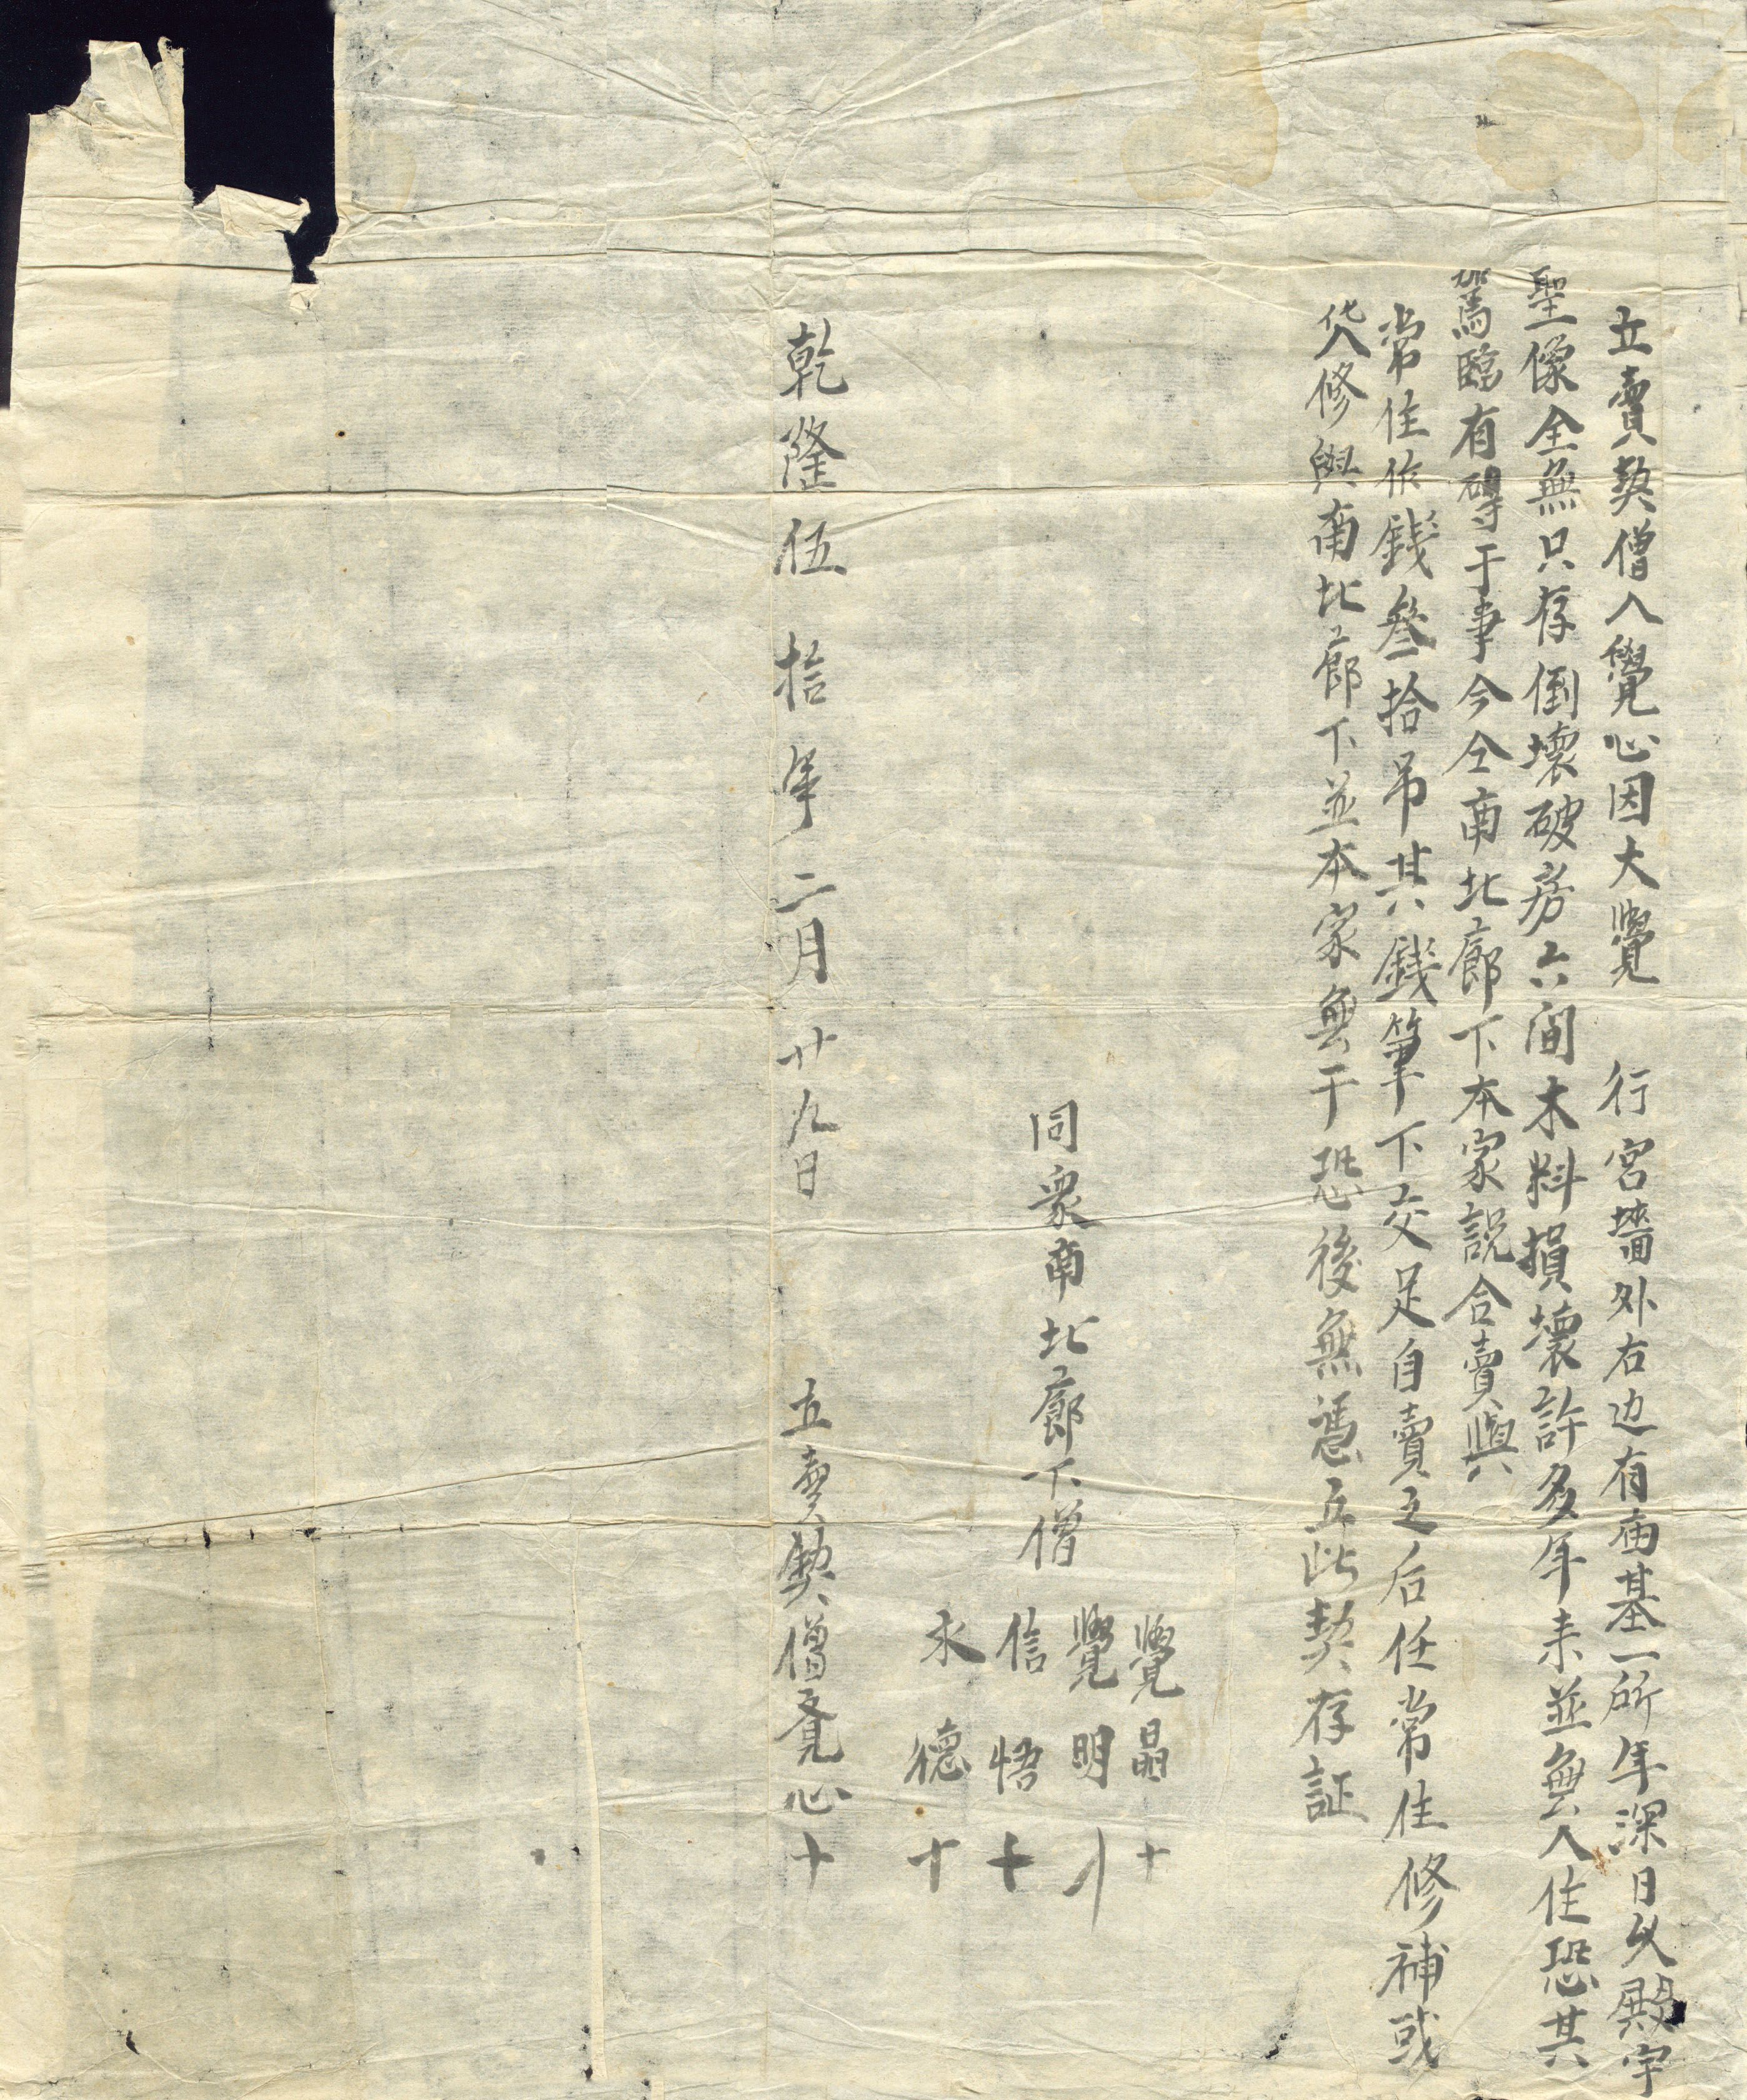 立賣契僧人覺心因大覺 行宮墻外右边有庙基一所年深日久殿宇
聖像全無只存倒壞破房六间木料損壞許多年来並無人住恐其
駕臨有碍于事今仝南北廊下本家説合賣與
常住作錢叁拾吊其錢筆下交足自賣之后任常住修補或
修與南北廊下並本家無干恐後無憑立此契存証
同衆南北廊下僧
覺晶十
覺明
信悟十
永德十
乾隆伍拾年二月廿九日 立賣契僧覔心十